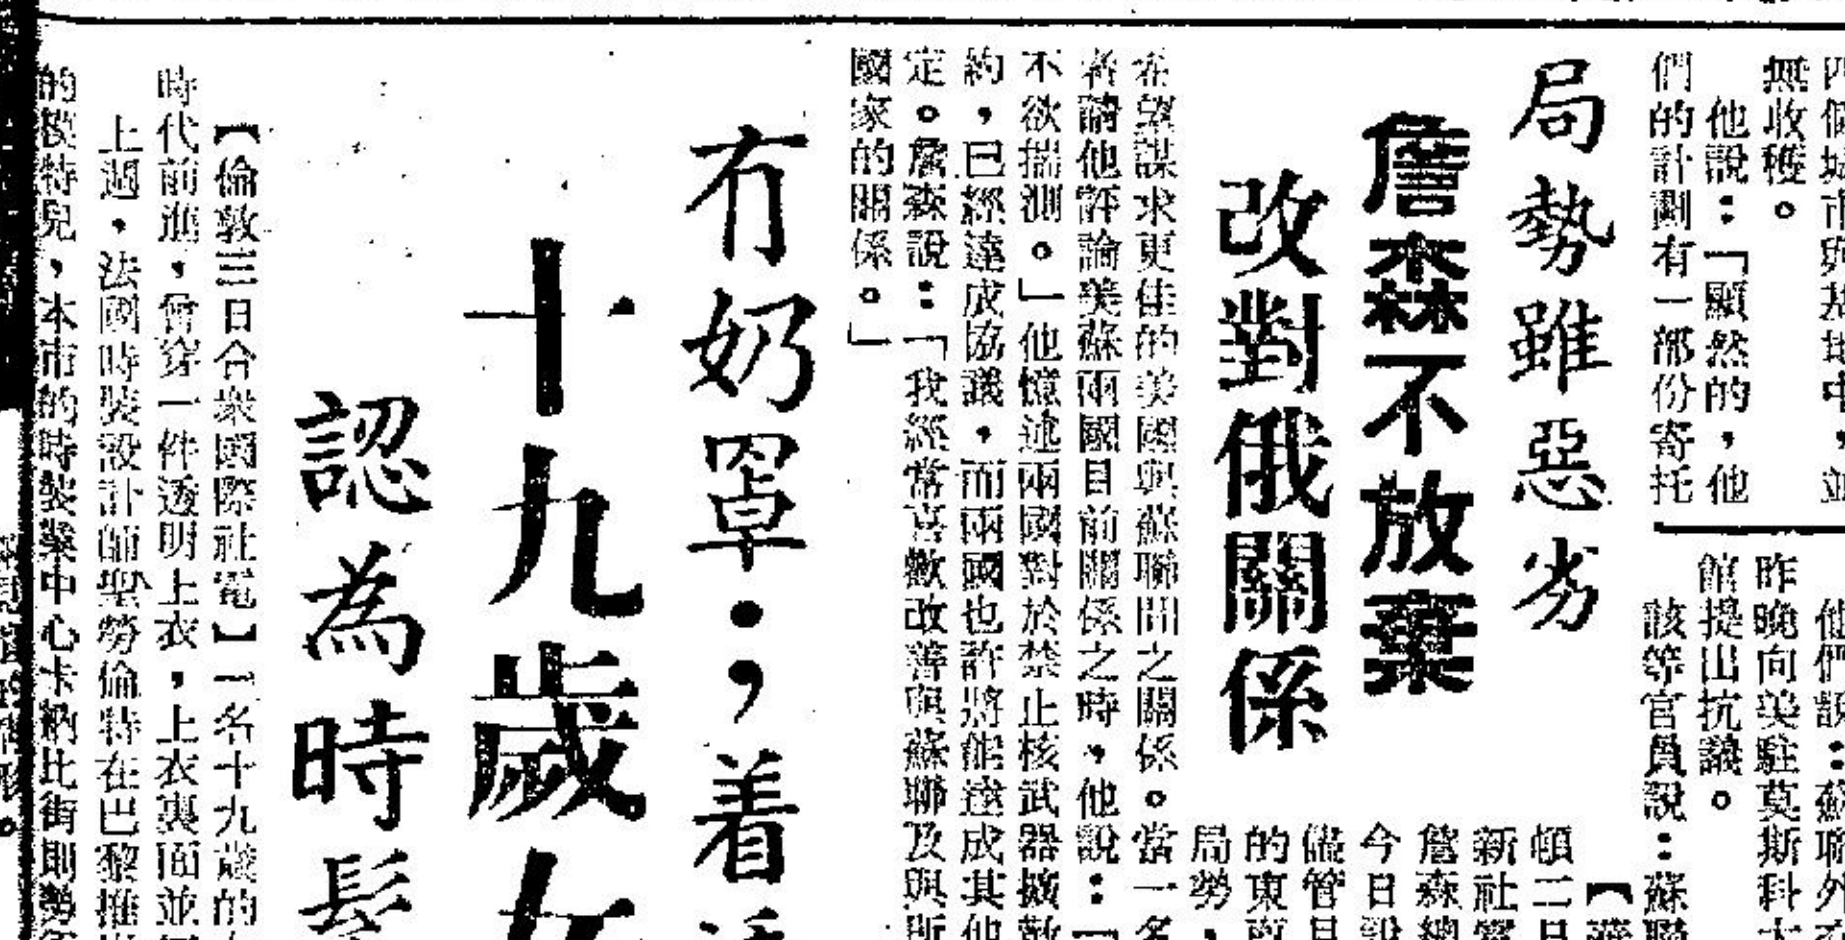 四個城市與基地中，並
無收穫。
他說：「顯然的，他
們的計劃有一部份寄托
他們說：蘇聯外交
昨晚向美駐莫斯科大
館提出抗議。
該等官員說：蘇聯
局勢雖惡劣
詹森不放棄
改對俄關係
頓三日
新社電
詹森總
今日說
儘管目
的東南
局勞，
希望謀求更佳的美國與蘇聯間之關係。當一名
者請他評論美蘇兩國目前關係之時，他說：「
不欲揣測。」他憶述兩國對於禁止核武器擴散
約，已經達成協議，而兩國也許將能達成其他
定。詹森說：「我經常喜歡改善與蘇聯及與所
國家的關係。」
冇奶罩；着透
十九歲女
認為時髦
【倫敦三日合衆國際社電】一名十九歲的女
時代前進，曾穿一件透明上衣，上衣裏面並
上週，法國時裝設計師聖勞倫特在巴黎推
的模特兒，本市的時裝業中心卡納比街則勢